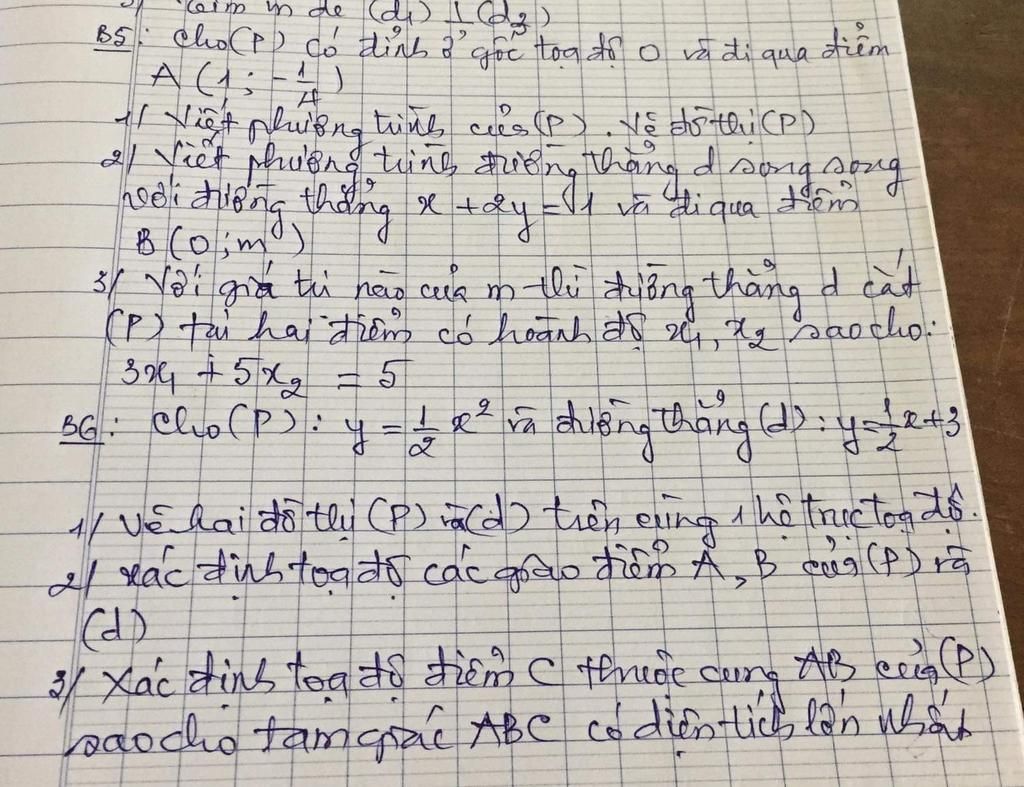 3) Tìm m để (d₁) ⊥ (d₂)
B5: Cho (P) có đỉnh ở gốc toạ độ O và đi qua điểm
A (1; -1/4)
1/ Viết phương trình của (P). Vẽ đồ thị (P)
2/ Viết phương trình đường thẳng d song song
với đường thẳng x + 2y = 1 và đi qua điểm
B (0; m)
3/ Với giá trị nào của m thì đường thẳng d cắt
(P) tại hai điểm có hoành độ x₁, x₂ sao cho:
3x₁ + 5x₂ = 5
B6: Cho (P): y = 1/2 x² và đường thẳng (d): y = 1/2 x + 3
1/ Vẽ hai đồ thị (P) và (d) trên cùng 1 hệ trục toạ độ.
2/ Xác định toạ độ các giao điểm A, B của (P) và
(d)
3/ Xác định toạ độ điểm C thuộc cung AB của (P)
sao cho tam giác ABC có diện tích lớn nhất